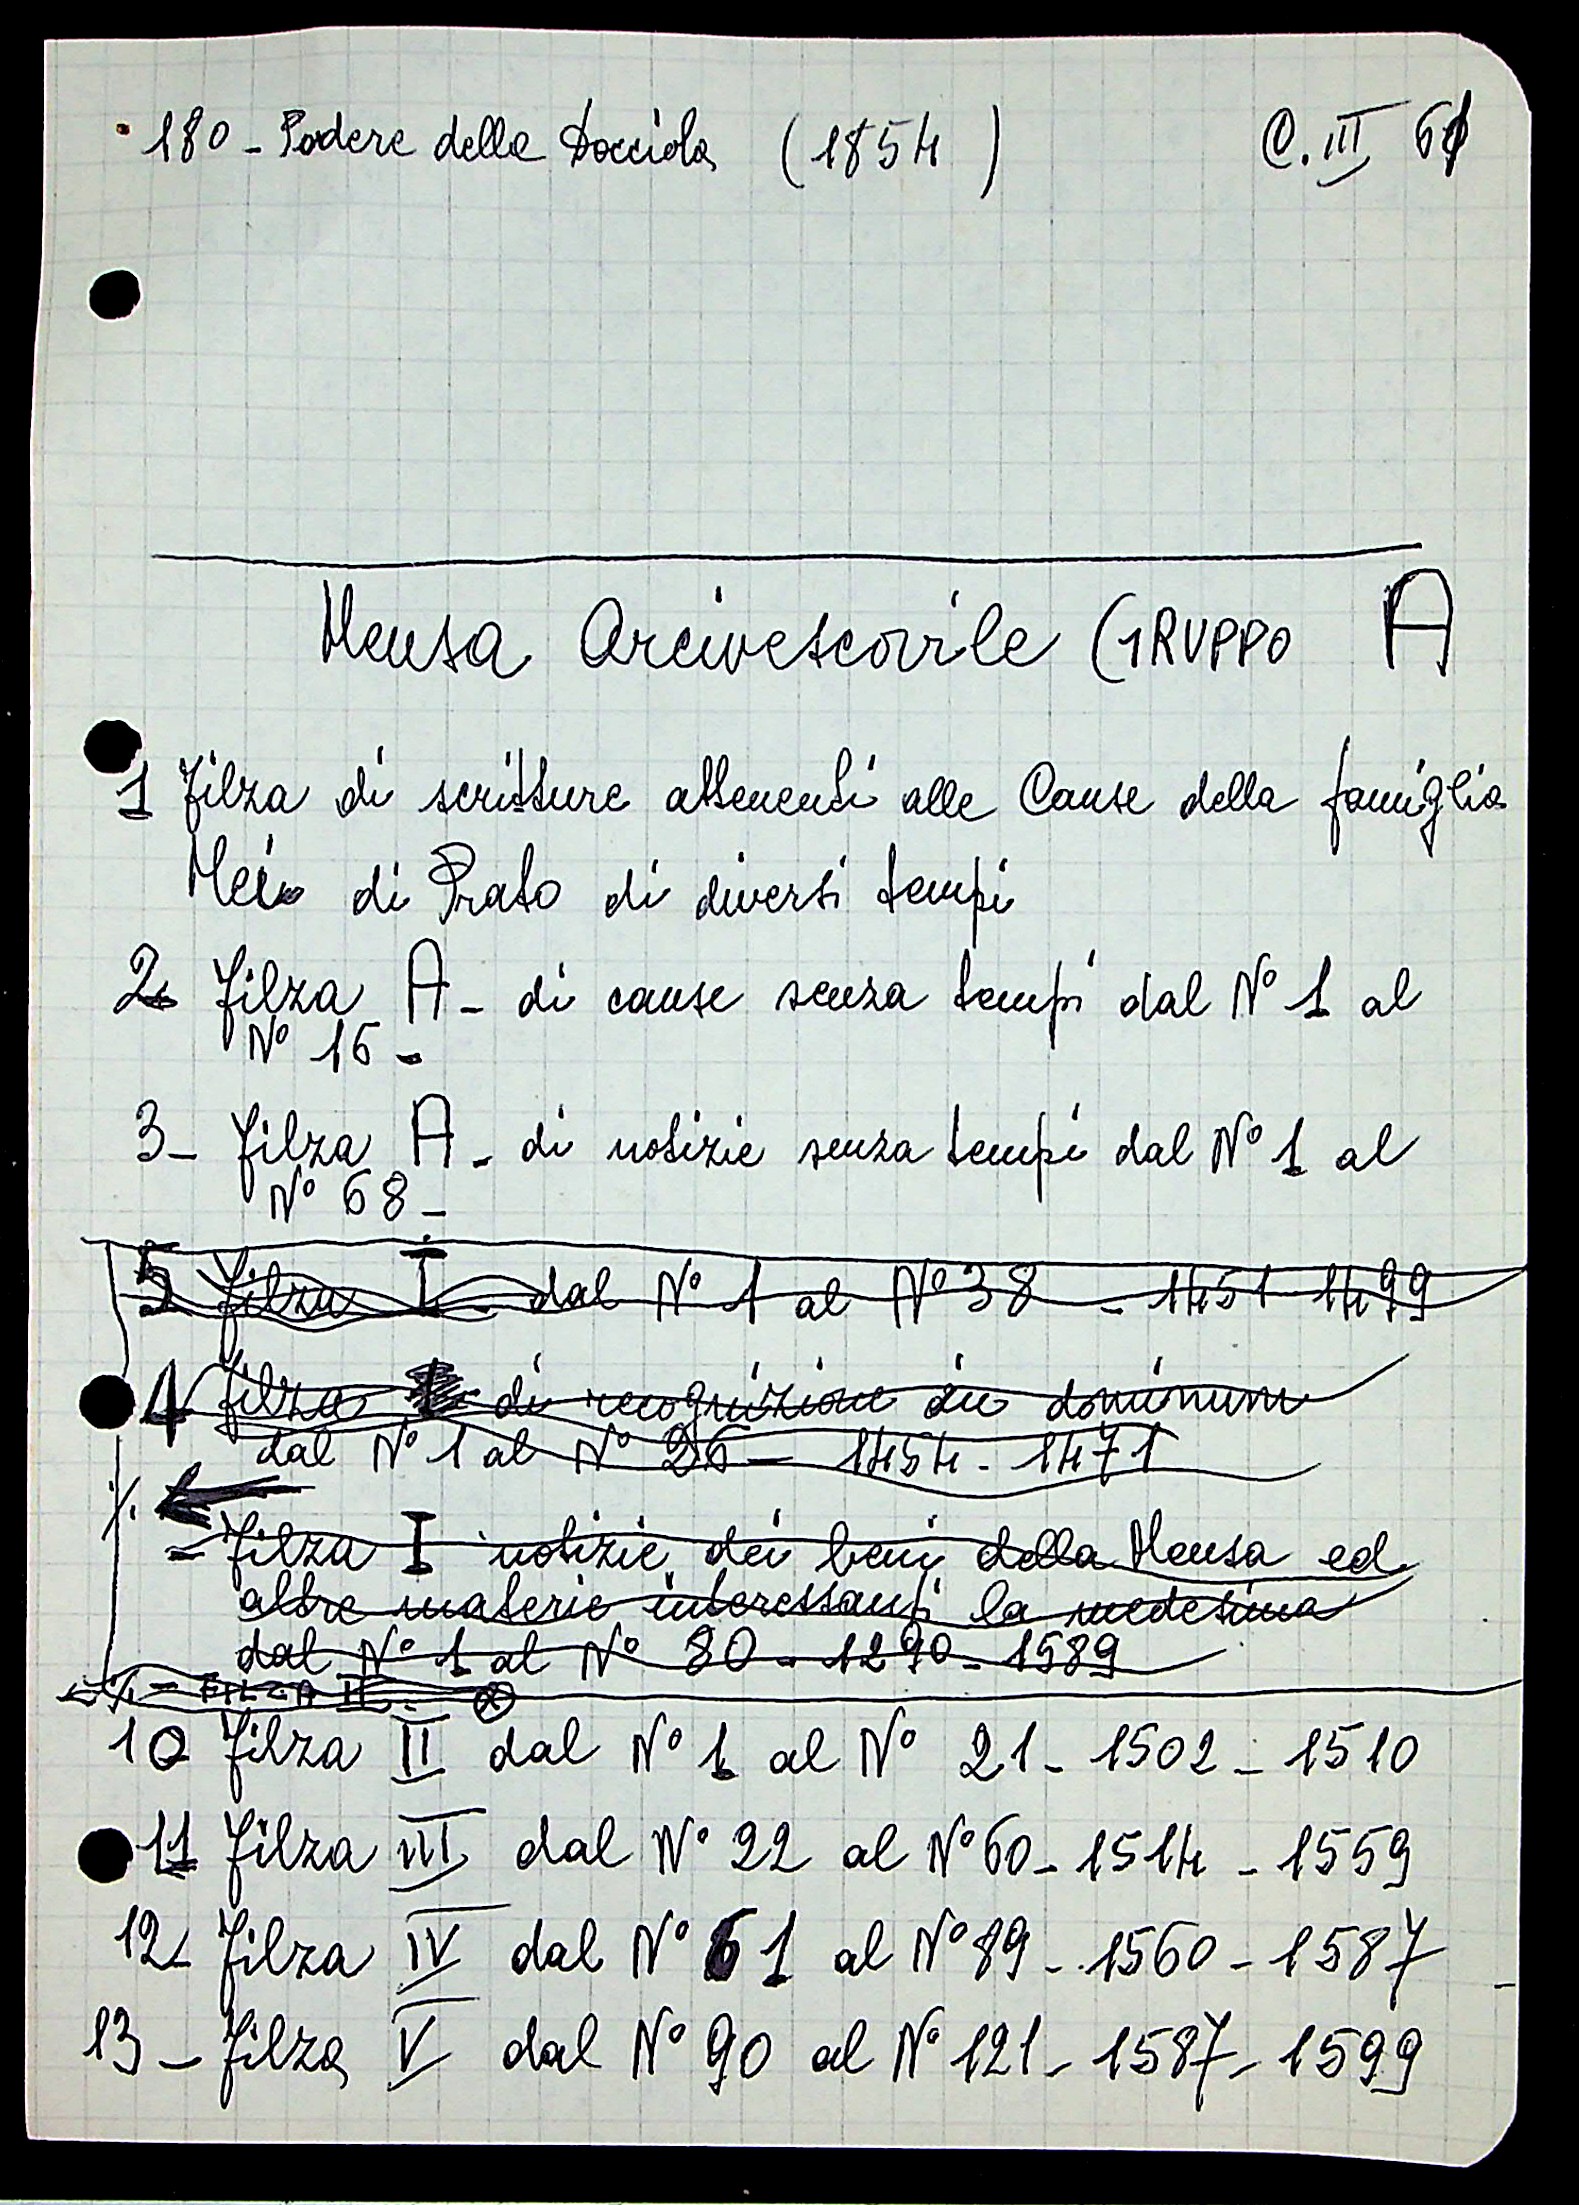 180 - Podere della Docciola (1854) C. III 61
Mensa Arcivescovile (GRUPPO A
1 Filza di scritture attenenti alle Cause della famiglia
Mei di Prato di diversi tempi
2 Filza A - di cause senza tempi dal N° 1 al
N° 16 -
3 - Filza A - di notizie senza tempi dal N° 1 al
N° 68 -
5 Filza I - dal N° 1 al N° 38 - 1451 - 1499
4 filza di recognizione in dominum
dal N° 1 al N° 26 - 1454 - 1471
- Filza I notizie dei beni della Mensa ed
altre materie interessanti la medesima
dal N° 1 al N° 80 - 1290 - 1589
- FILZA II
10 Filza II dal N° 1 al N° 21 - 1502 - 1510
11 Filza III dal N° 22 al N° 60 - 1514 - 1559
12 Filza IV dal N° 61 al N° 89 - 1560 - 1587
13 - Filza V dal N° 90 al N° 121 - 1587 - 1599